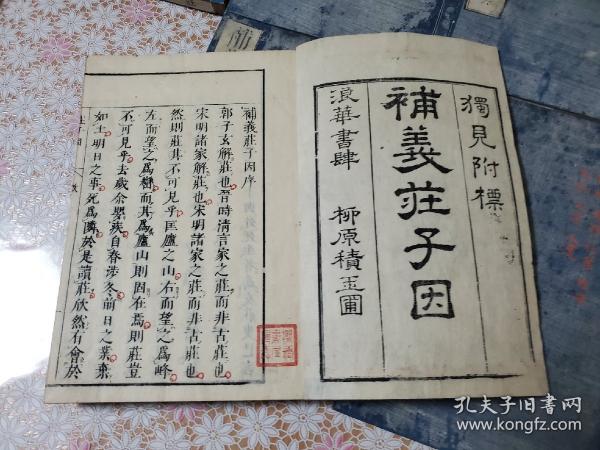 獨見附標
補義莊子因
浪華書肆 柳原積玉圃
補義莊子因序
郭子玄解莊也晉時清言家之莊而非古莊也
宋明諸家解莊也宋明諸家之莊而非古莊也
然則莊其不可見乎匡廬之山右而望之爲峰
左而望之爲嶺而其爲廬山則固在焉則莊豈
不可見乎去歲余嬰疾自春涉冬前日之葉棄
如土明日之事死爲隣於是讀莊欣然有會於
孔夫子旧书网
www.kongfz.com